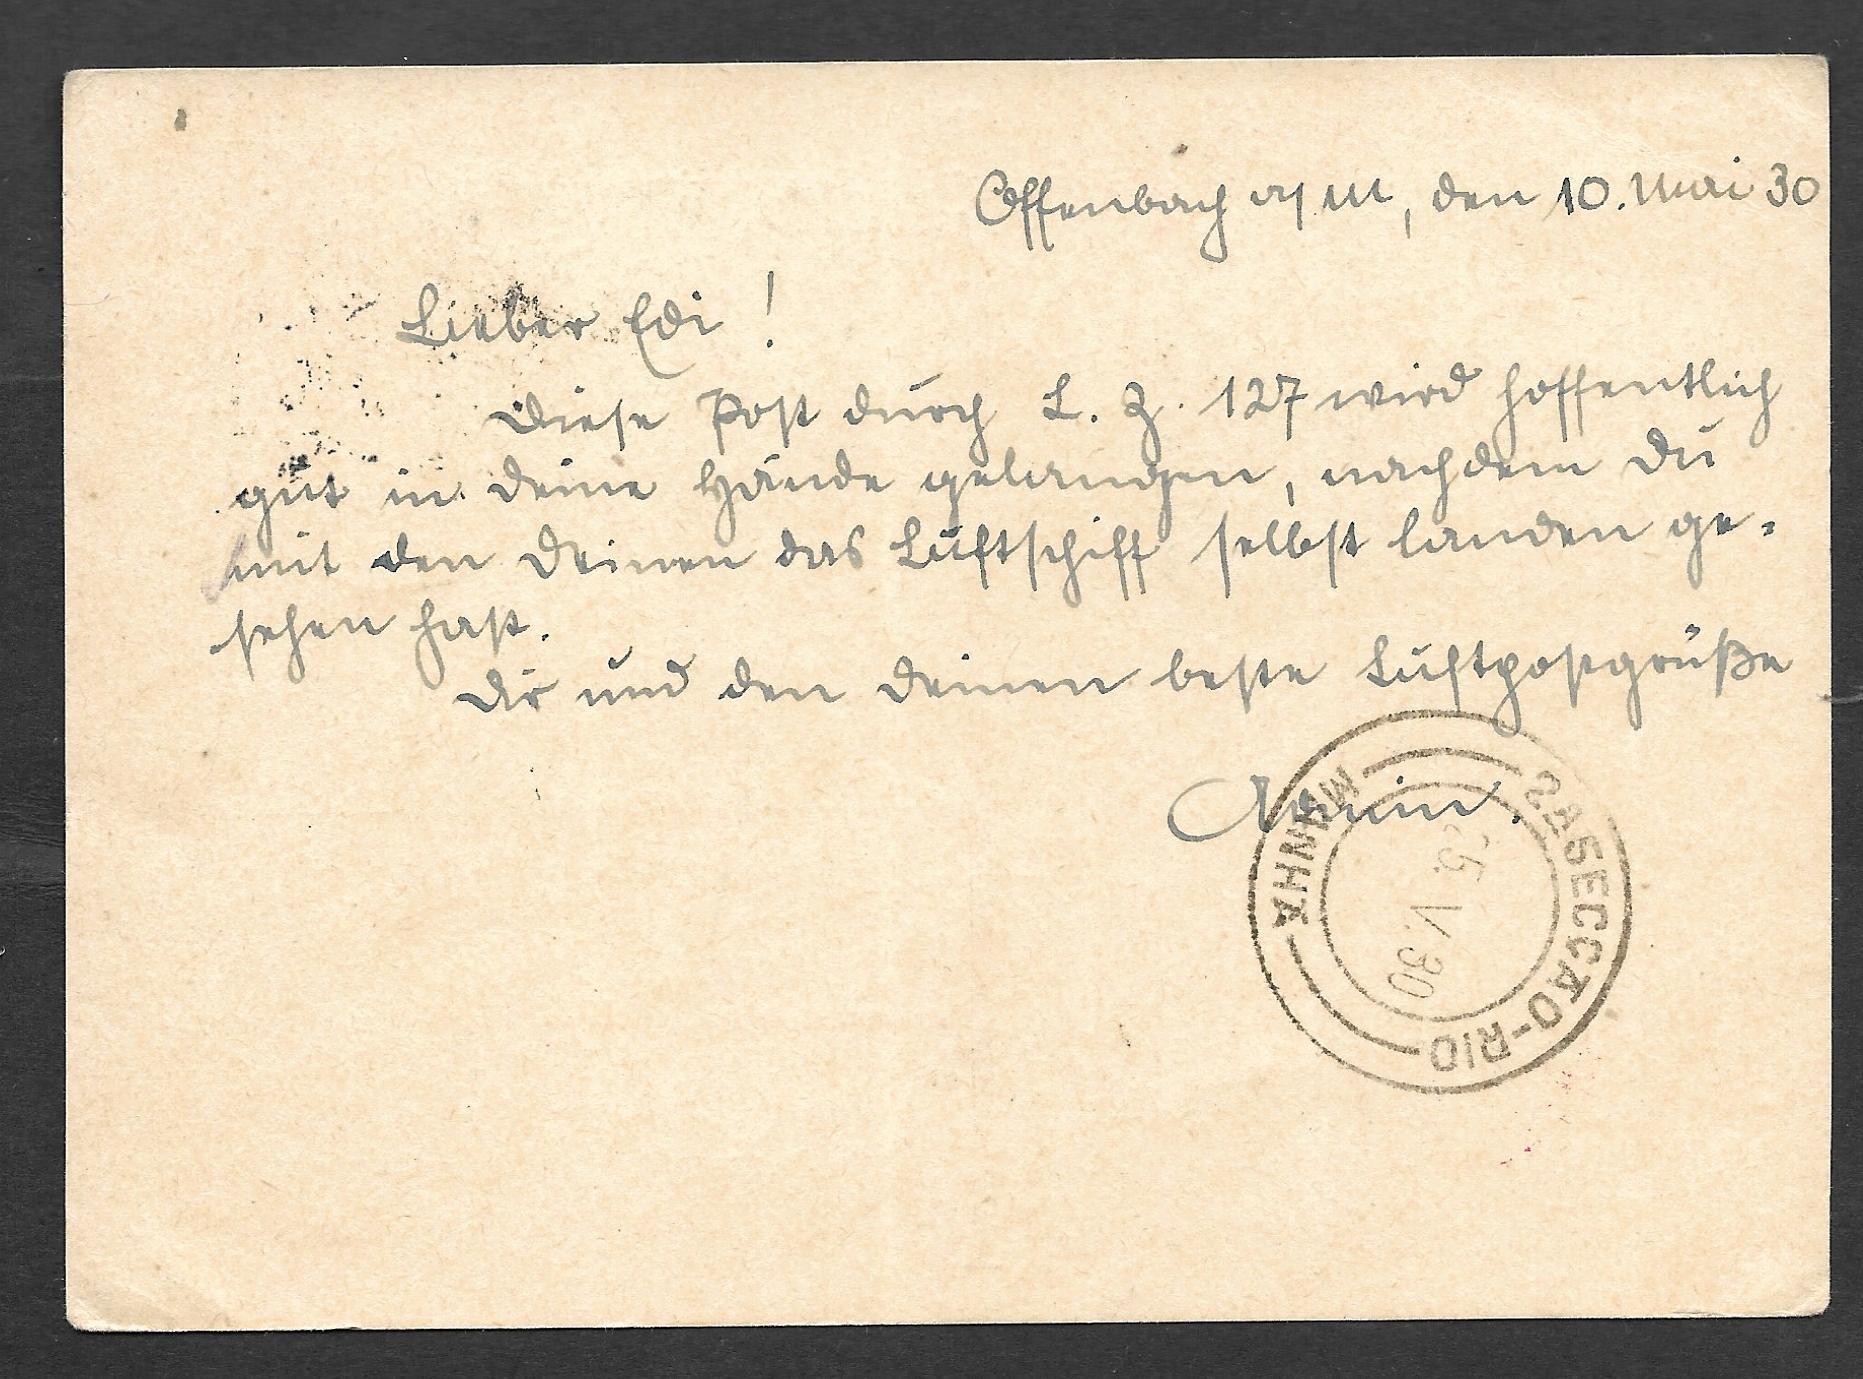 Offenbach a/M, den 10. Mai 30
Lieber Edi!
Diese Post durch L. Z. 127 wird hoffentlich
gut in Deine Hände gelangen, nachdem Du
mit den Deinen das Luftschiff selbst landen ge-
sehen hast.
Dir und den Deinen beste Luftpostgrüße
Armin.
5ASECCAO-RIO
MANHÃ
25 V. 30